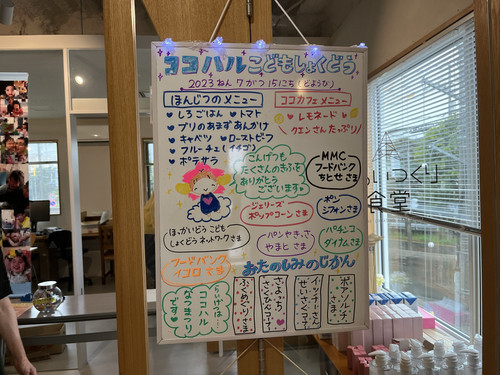 ココハルこどもしょくどう
2023ねん7がつ15にち(どようび)
ほんじつのメニュー
しろごはん
トマト
ブリのあまずあんかけ
キャベツ
ローストビーフ
フルーチェ(イチゴ)
ポテサラ
ココカフェメニュー
レモネード
クエンさんたっぷり
こんげつも
たくさんのきふを
ありがとう
ございます
MMC
フードバンク
ちとせさま
ジェリーズ
ポップコーンさま
ポン
シフォンさま
ほっかいどうこども
しょくどうネットワークさま
パンやきっさ
やまとさま
パチンコ
ダイナムさま
フードバンク
イコロさま
おたのしみのじかん
らいげつは
ココハル
なつまつり
です
さま
さま
食堂